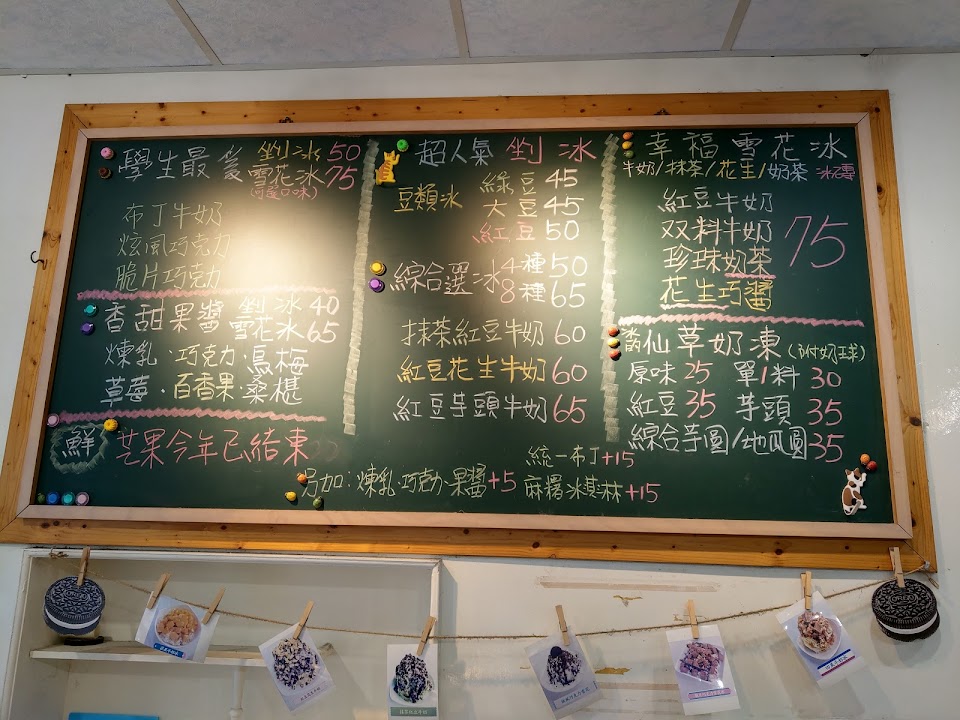 學生最愛 剉冰 50
雪花冰 75
布丁牛奶
炫風巧克力
脆片巧克力
香甜果醬 剉冰 40
雪花冰 65
煉乳·巧克力·烏梅
草莓·百香果·桑椹
鮮 芒果今年已結束
超人氣 剉冰
豆類冰 綠豆 45
大豆 45
紅豆 50
綜合選冰 4種 50
8種 65
抹茶紅豆牛奶 60
紅豆花生牛奶 60
紅豆芋頭牛奶 65
幸福雪花冰
牛奶/抹茶/花生/奶茶 冰磚
紅豆牛奶
双料牛奶
珍珠奶茶
花生巧醬
75
仙草奶凍(附奶球)
原味 25 單1料 30
紅豆 35 芋頭 35
綜合芋圓/地瓜圓 35
另加:煉乳·巧克力·果醬+5
統一布丁+15
麻糬冰淇淋+15